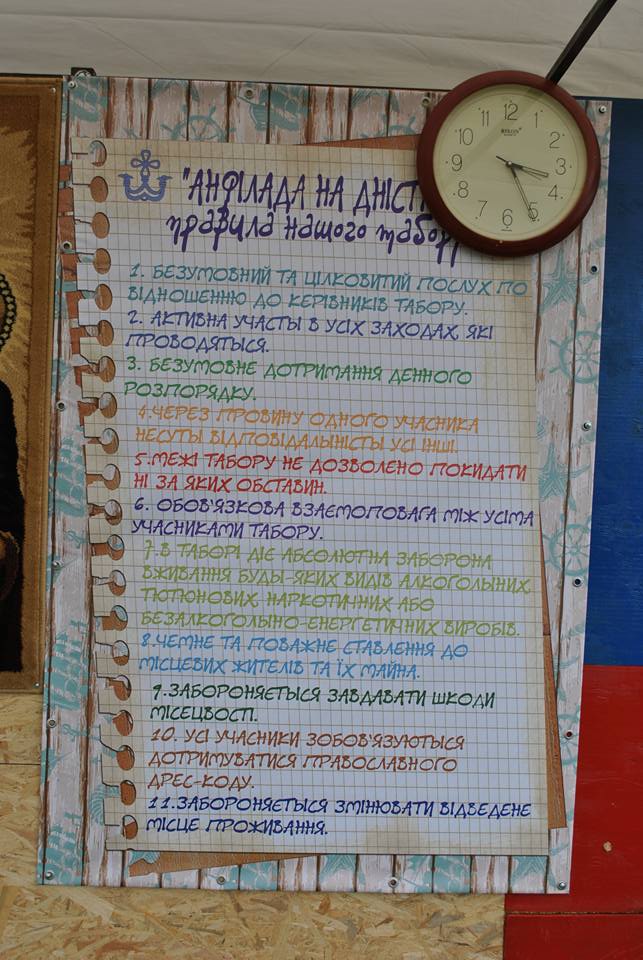 "АНФІЛАДА НА ДНІСТ
правила нашого табору
1. БЕЗУМОВНИЙ ТА ЦІЛКОВИТИЙ ПОСЛУХ ПО
ВІДНОШЕННЮ ДО КЕРІВНИКІВ ТАБОРУ.
2. АКТИВНА УЧАСТЬ В УСІХ ЗАХОДАХ, ЯКІ
ПРОВОДЯТЬСЯ.
3. БЕЗУМОВНЕ ДОТРИМАННЯ ДЕННОГО
РОЗПОРЯДКУ.
4.ЧЕРЕЗ ПРОВИНУ ОДНОГО УЧАСНИКА
НЕСУТЬ ВІДПОВІДАЛЬНІСТЬ УСІ ІНШІ.
5.МЕЖІ ТАБОРУ НЕ ДОЗВОЛЕНО ПОКИДАТИ
НІ ЗА ЯКИХ ОБСТАВИН.
6. ОБОВ'ЯЗКОВА ВЗАЄМОПОВАГА МІЖ УСІМА
УЧАСНИКАМИ ТАБОРУ.
7.В ТАБОРІ ДІЄ АБСОЛЮТНА ЗАБОРОНА
ВЖИВАННЯ БУДЬ-ЯКИХ ВИДІВ АЛКОГОЛЬНИХ,
ТЮТЮНОВИХ, НАРКОТИЧНИХ АБО
БЕЗАЛКОГОЛЬНО-ЕНЕРГЕТИЧНИХ ВИРОБІВ.
8.ЧЕМНЕ ТА ПОВАЖНЕ СТАВЛЕННЯ ДО
МІСЦЕВИХ ЖИТЕЛІВ ТА ЇХ МАЙНА.
9.ЗАБОРОНЯЄТЬСЯ ЗАВДАВАТИ ШКОДИ
МІСЕЦВОСТІ.
10. УСІ УЧАСНИКИ ЗОБОВ'ЯЗУЮТЬСЯ
ДОТРИМУВАТИСЯ ПРАВОСЛАВНОГО
ДРЕС-КОДУ.
11.ЗАБОРОНЯЄТЬСЯ ЗМІНЮВАТИ ВІДВЕДЕНЕ
МІСЦЕ ПРОЖИВАННЯ.
12
1
2
3
4
5
6
7
8
9
10
11
RIKON